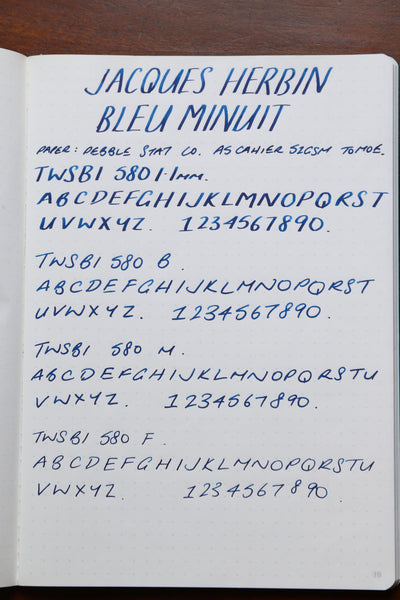 JACQUES HERBIN
BLEU MINUIT
PAPER: PEBBLE STAT CO. A5 CAHIER 52GSM TOMOE.
TWSBI 580 1.1MM.
ABCDEFGHIJKLMNOPQRST
UVWXYZ. 1234567890.
TWSBI 580 B.
ABCDEFGHIJKLMNOPQRST
UVWXYZ. 1234567890.
TWSBI 580 M.
ABCDEFGHIJKLMNOPQRSTU
VWXYZ. 1234567890.
TWSBI 580 F.
ABCDEFGHIJKLMNOPQRSTU
VWXYZ. 1234567890.